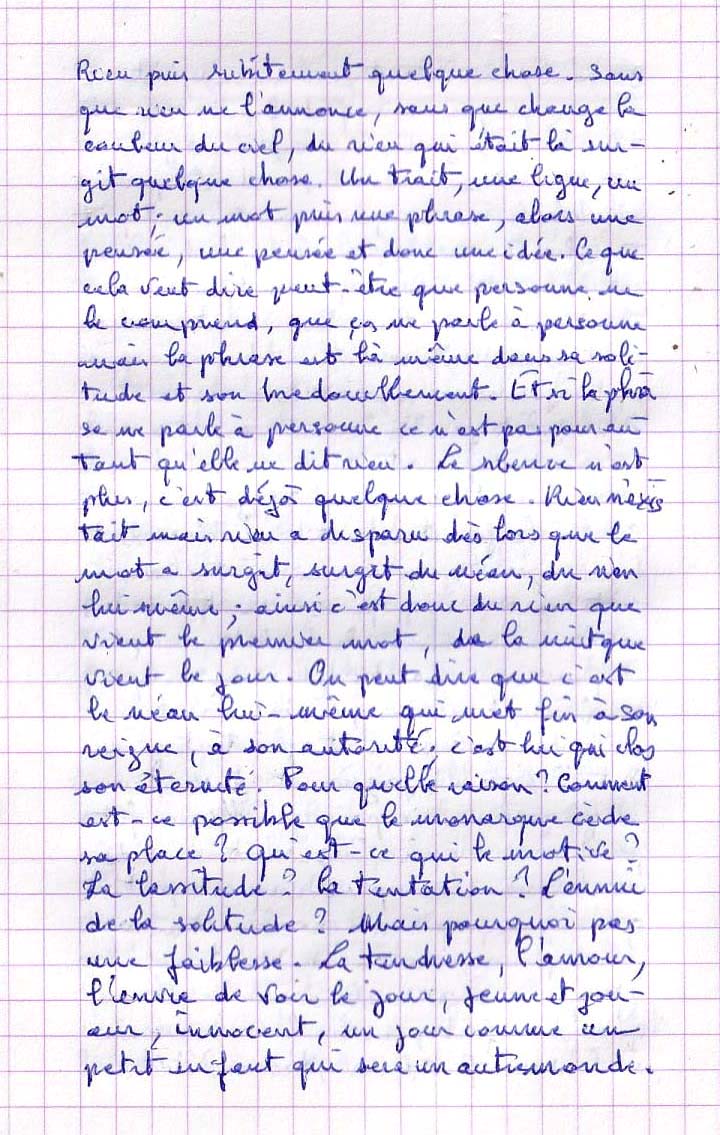 Rien puis subitement quelque chose. Sans
que rien ne l'annonce, sans que change la
couleur du ciel, du rien qui était là sur-
git quelque chose. Un trait, une ligne, un
mot; un mot puis une phrase, alors une
pensée, une pensée et donc une idée. Ce que
cela veut dire peut-être que personne ne
le comprend, que ça ne parle à personne
mais la phrase est là même dans sa soli-
tude et son bredouillement. Et si la phra
se ne parle à personne ce n'est pas pour au
tant qu'elle ne dit rien. Le silence n'est
plus, c'est déjà quelque chose. Rien n'exis
tait mais rien a disparu dès lors que le
mot a surgit, surgit du néan, du rien
lui même; ainsi c'est donc du rien que
vient le premier mot, de la nuit que
vient le jour. On peut dire que c'est
le néan lui-même qui met fin à son
reigne, à son autorité; c'est lui qui clos
son éternité. Pour quelle raison? Comment
est-ce possible que le monarque cède
sa place? Qu'est-ce qui le motive?
La lassitude? la tentation? l'ennui
de la solitude? Mais pourquoi pas
une faiblesse. La tendresse, l'amour,
l'envie de voir le jour, jeune et jou-
eur, innocent, un jour comme un
petit enfant qui sera un autre monde.